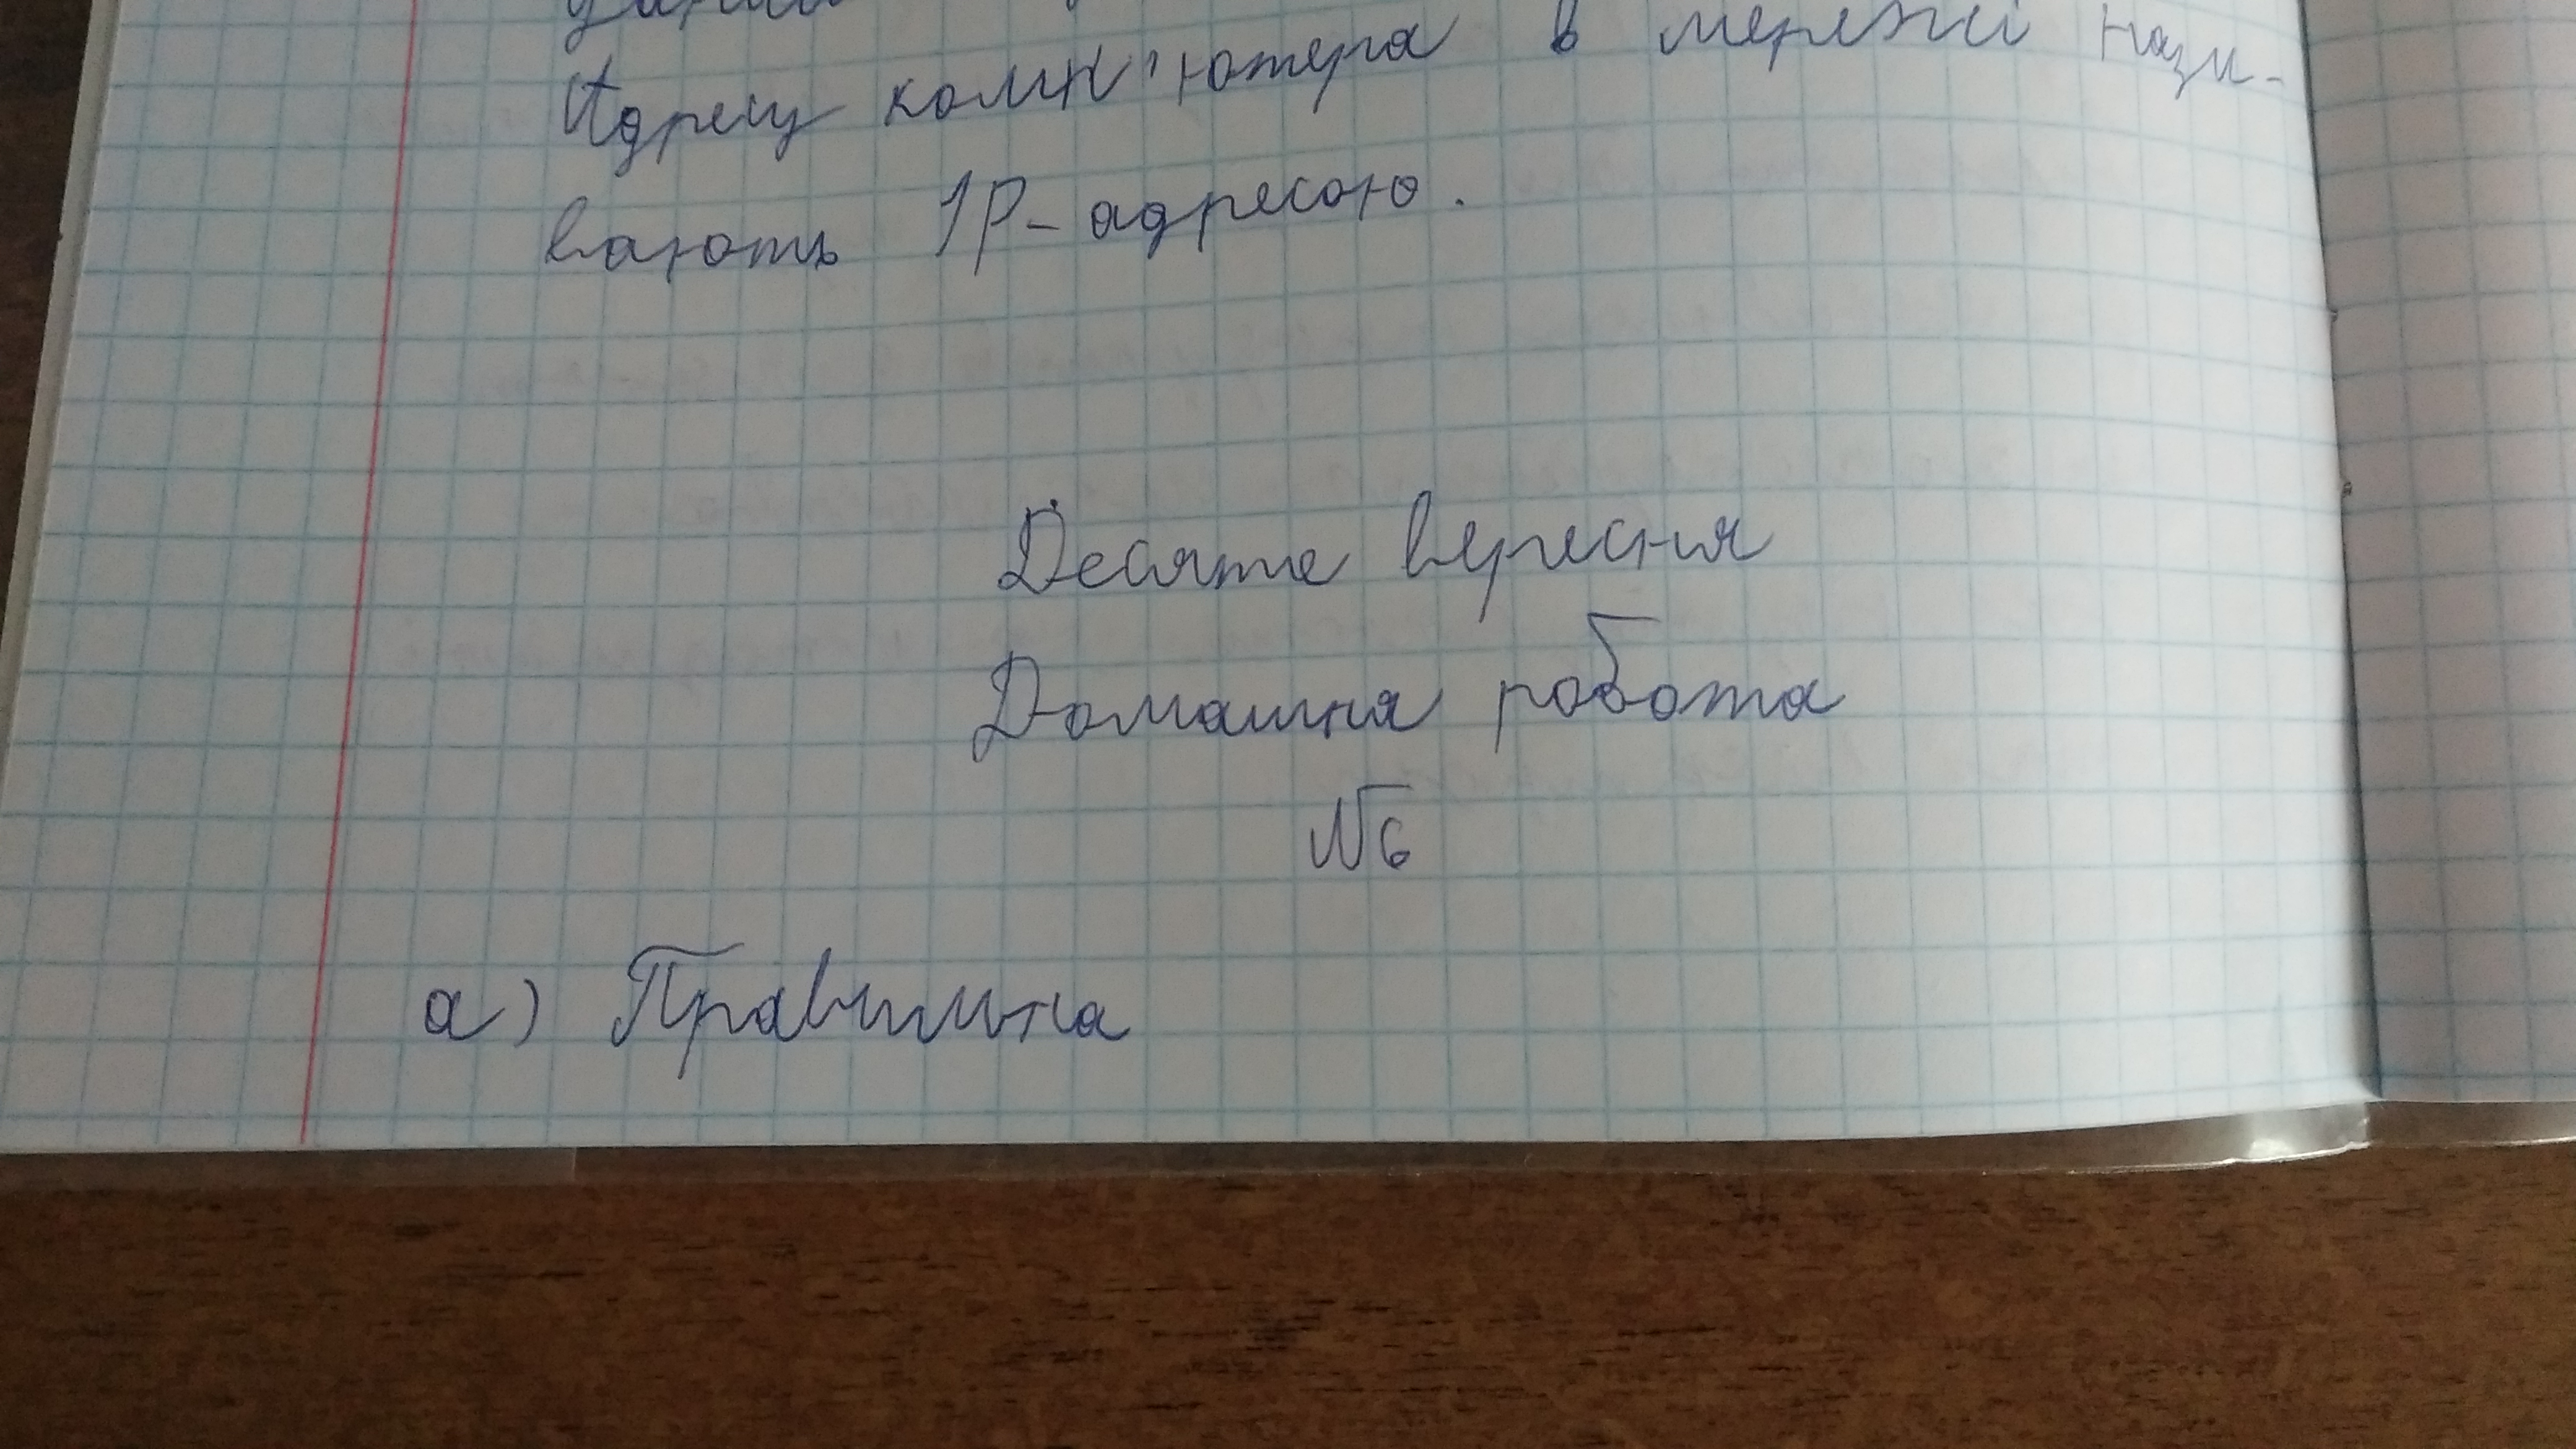 Адресу комп'ютера в мережі нази-
вають ІР-адресою.
Десяте вересня
Домашня робота
№6
а) Правильна